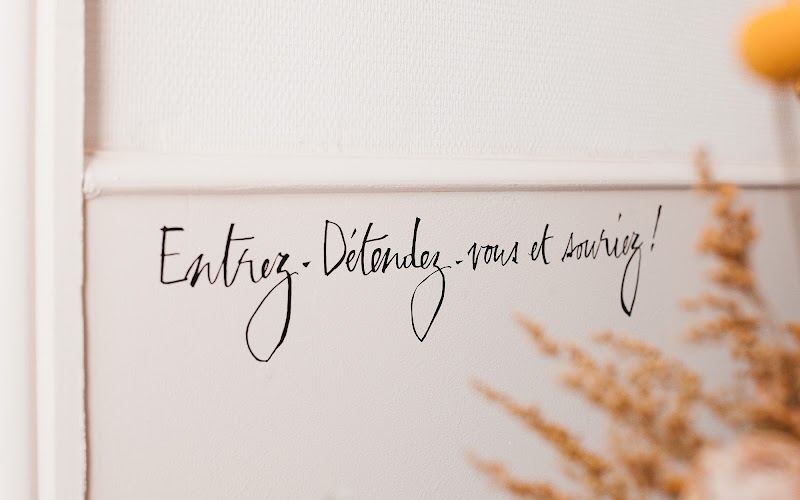 Entrez. Détendez-vous et souriez!